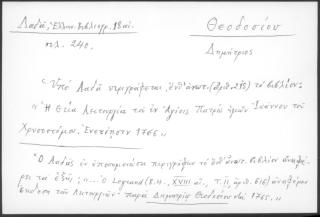 Λαδᾶ, Ἑλλην. Βιβλιογρ. 18 αἰ.
σελ. 240.
Θεοδοσίου
Δημήτριος
"Ὑπὸ Λαδᾶ περιγράφεται, ὑπ' ἀριθ. (ἀριθ. 215) τὸ βιβλίον:
"Ἡ Θεία Λειτουργία τοῦ ἐν Ἁγίοις Πατρὸς ἡμῶν Ἰωάννου τοῦ
Χρυσοστόμου. Ἐνετίησιν 1766"
"Ὁ Λαδᾶς ἐν ὑποσημειώσει περιγράφων τὸ βιβλίον ἀναφέ-
ρει τὰ ἑξῆς: "... Ὁ Legrand (B.H. XVIII αἰ., τ. II, ἀριθ. 616) ἀναφέρει
ἔκδοση τῶν Λειτουργιῶν παρὰ Δημητρίῳ Θεοδοσίου τοῦ 1765."